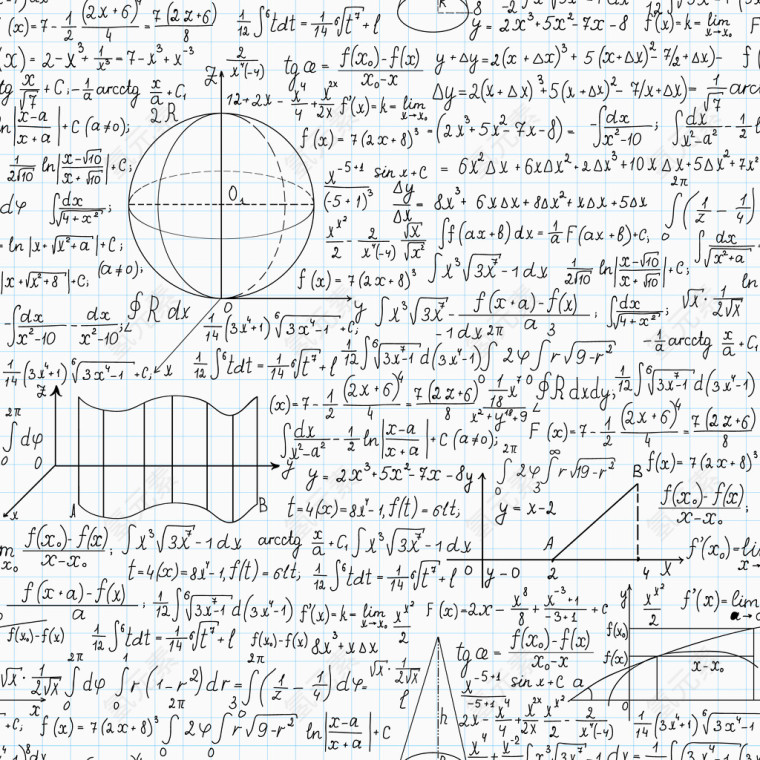 (x)=7-1/2 (2x+6)⁴/4 = 7(2z+6)/8
1/12∫⁶tdt = 1/14 ⁶√t⁷+l
y = 2x³+5x²-7x-8
f(x)=k= lim x→x₀
(x) = 2-x³ 1/x³ = 7-x³+x⁻³
2/x⁴(-4)
tgα = f(x₀)-f(x)/x₀-x
y+Δy=2(x+Δx)³+5(x+Δx)²-7/2+Δx)-
tg x/√7 + C; -1/a arcctg x/a + C₁
12+2x - x⁴/4 + x²ˣ/2x f'(x)=k= lim x→x₀
Δy=2(x+Δx)³+5(x+Δx)²-7/x+Δx)=
2R
Z
ln|x-a/x+a| + C (a≠0);
f(x)=7(2x+8)³
=(2x³+5x²-7x-8) =
∫dx/x²-10;
∫dx/x²-a²
1/2√10 ln|x-√10/x+√10| + C;
x⁻⁵⁺¹/(-5+1)³ sin x+C
= 6x²Δx + 6xΔx²+2Δx³+10xΔx+5Δx²+7x²
Δy/Δx = 8x³+6xΔx+8Δx²+xΔx+5Δx
dφ ∫dx/√4+x²;
O₁
= ln|x+√x²+a|+C;
xˣ²/2 - 2/x⁴(-4) √x/√x²
∫f(ax+b)dx=1/a F(ax+b)+C;
2π ∫ 0 (1/2 - 1/4)
|x+√x²+8|+C; (a≠0);
f(x)=7(2x+8)³
∫x³√3x⁷-1dx
1/2√10 ln|x-√10/x+√10|+C;
∫dx/√x²+a
-∫dx/x²-10 - dx/x²-10;
∮R dx
0
y
∫x³√3x⁷- f(x+a)-f(x)/a;
∫dx/√4+x²;
√x · 1/2√x
1/14(3x⁴+1) ⁶√3x⁴-1+C;
-1dx
-1/a arcctg x/a + C₁
1/14(3x⁴+1) ⁶√3x⁴-1+C;
x
1/12∫⁶tdt = 1/14 ⁶√t⁷+l
1/12∫⁶√3x⁷-1 d(3x⁴-1)
2π ∫ 2φ 3 ∫ r√9-r²
z
2π ∫ 0 dφ
0
(x)=7-1/2 (2x+6)⁴/4 = 7(2z+6)/8
1/18 x⁷⁰/x²+y¹⁸+9
∮R dxdy;
1/12∫⁶√3x⁷-1 d(3x⁴-1)
∫dx/x²-a² - 1/2 ln|x-a/x+a|+C (a≠0);
F(x)=7-1/2 (2x+6)⁴/4 = 7(2z+6)/8
y
y = 2x³+5x²-7x-8
y
2π ∫ 0 2φ ∞ ∫ 3 r√19-r²
B
f(x)=7(2x+8)³
x
A
B
t=4(x)=8x⁴-1, f(t)=6lt;
y = x-2
f(x₀)-f(x)/x-x₀;
f(x₀)-f(x)/x-x₀;
∫x³√3x⁷-1dx
arcctg x/a + C₁
∫x³√3x⁷-1dx
A
f'(x₀)=
t=4(x)=8x⁴-1, f(t)=6lt;
1/12∫⁶tdt = 1/14 ⁶√t⁷+l
0
y-0
2
4
x
f(x+a)-f(x)/a;
1/12∫⁶√3x⁷-1 d(3x⁴-1)
f'(x)=k= lim x→x₀ xˣ²/2
F(x)=2x- x⁸/8 + x⁻³⁺¹/-3+1 +c
y
xˣ²/2
f'(x)=lim
f(x₀)-f(x)
1/12∫⁶tdt = 1/14 ⁶√t⁷+l
f(x₀)-f(x)
8x³+xΔx
tgα = f(x₀)-f(x)/x₀-x
f(x₀)
f(x)
x-x₀
√x · 1/2√x
2π ∫ 0 dφ 1 ∫ 0 r(1-r²)dr= 2π ∫ 0 (1/2 - 1/4)dφ=
√x · 1/2√x
l
h
x⁻⁵⁺¹/-5+1 sin x+C a
0
x
+C;
f(x)=7(2x+8)³
2π ∫ 0 2φ 3 ∫ 0 r√9-r²
ln|x-a/x+a|+C
2x- x⁴/4 + x²ˣ/2x x²/2 - 2/x⁴(-4)
1/14(3x⁴+1) ⁶√3x⁴-1